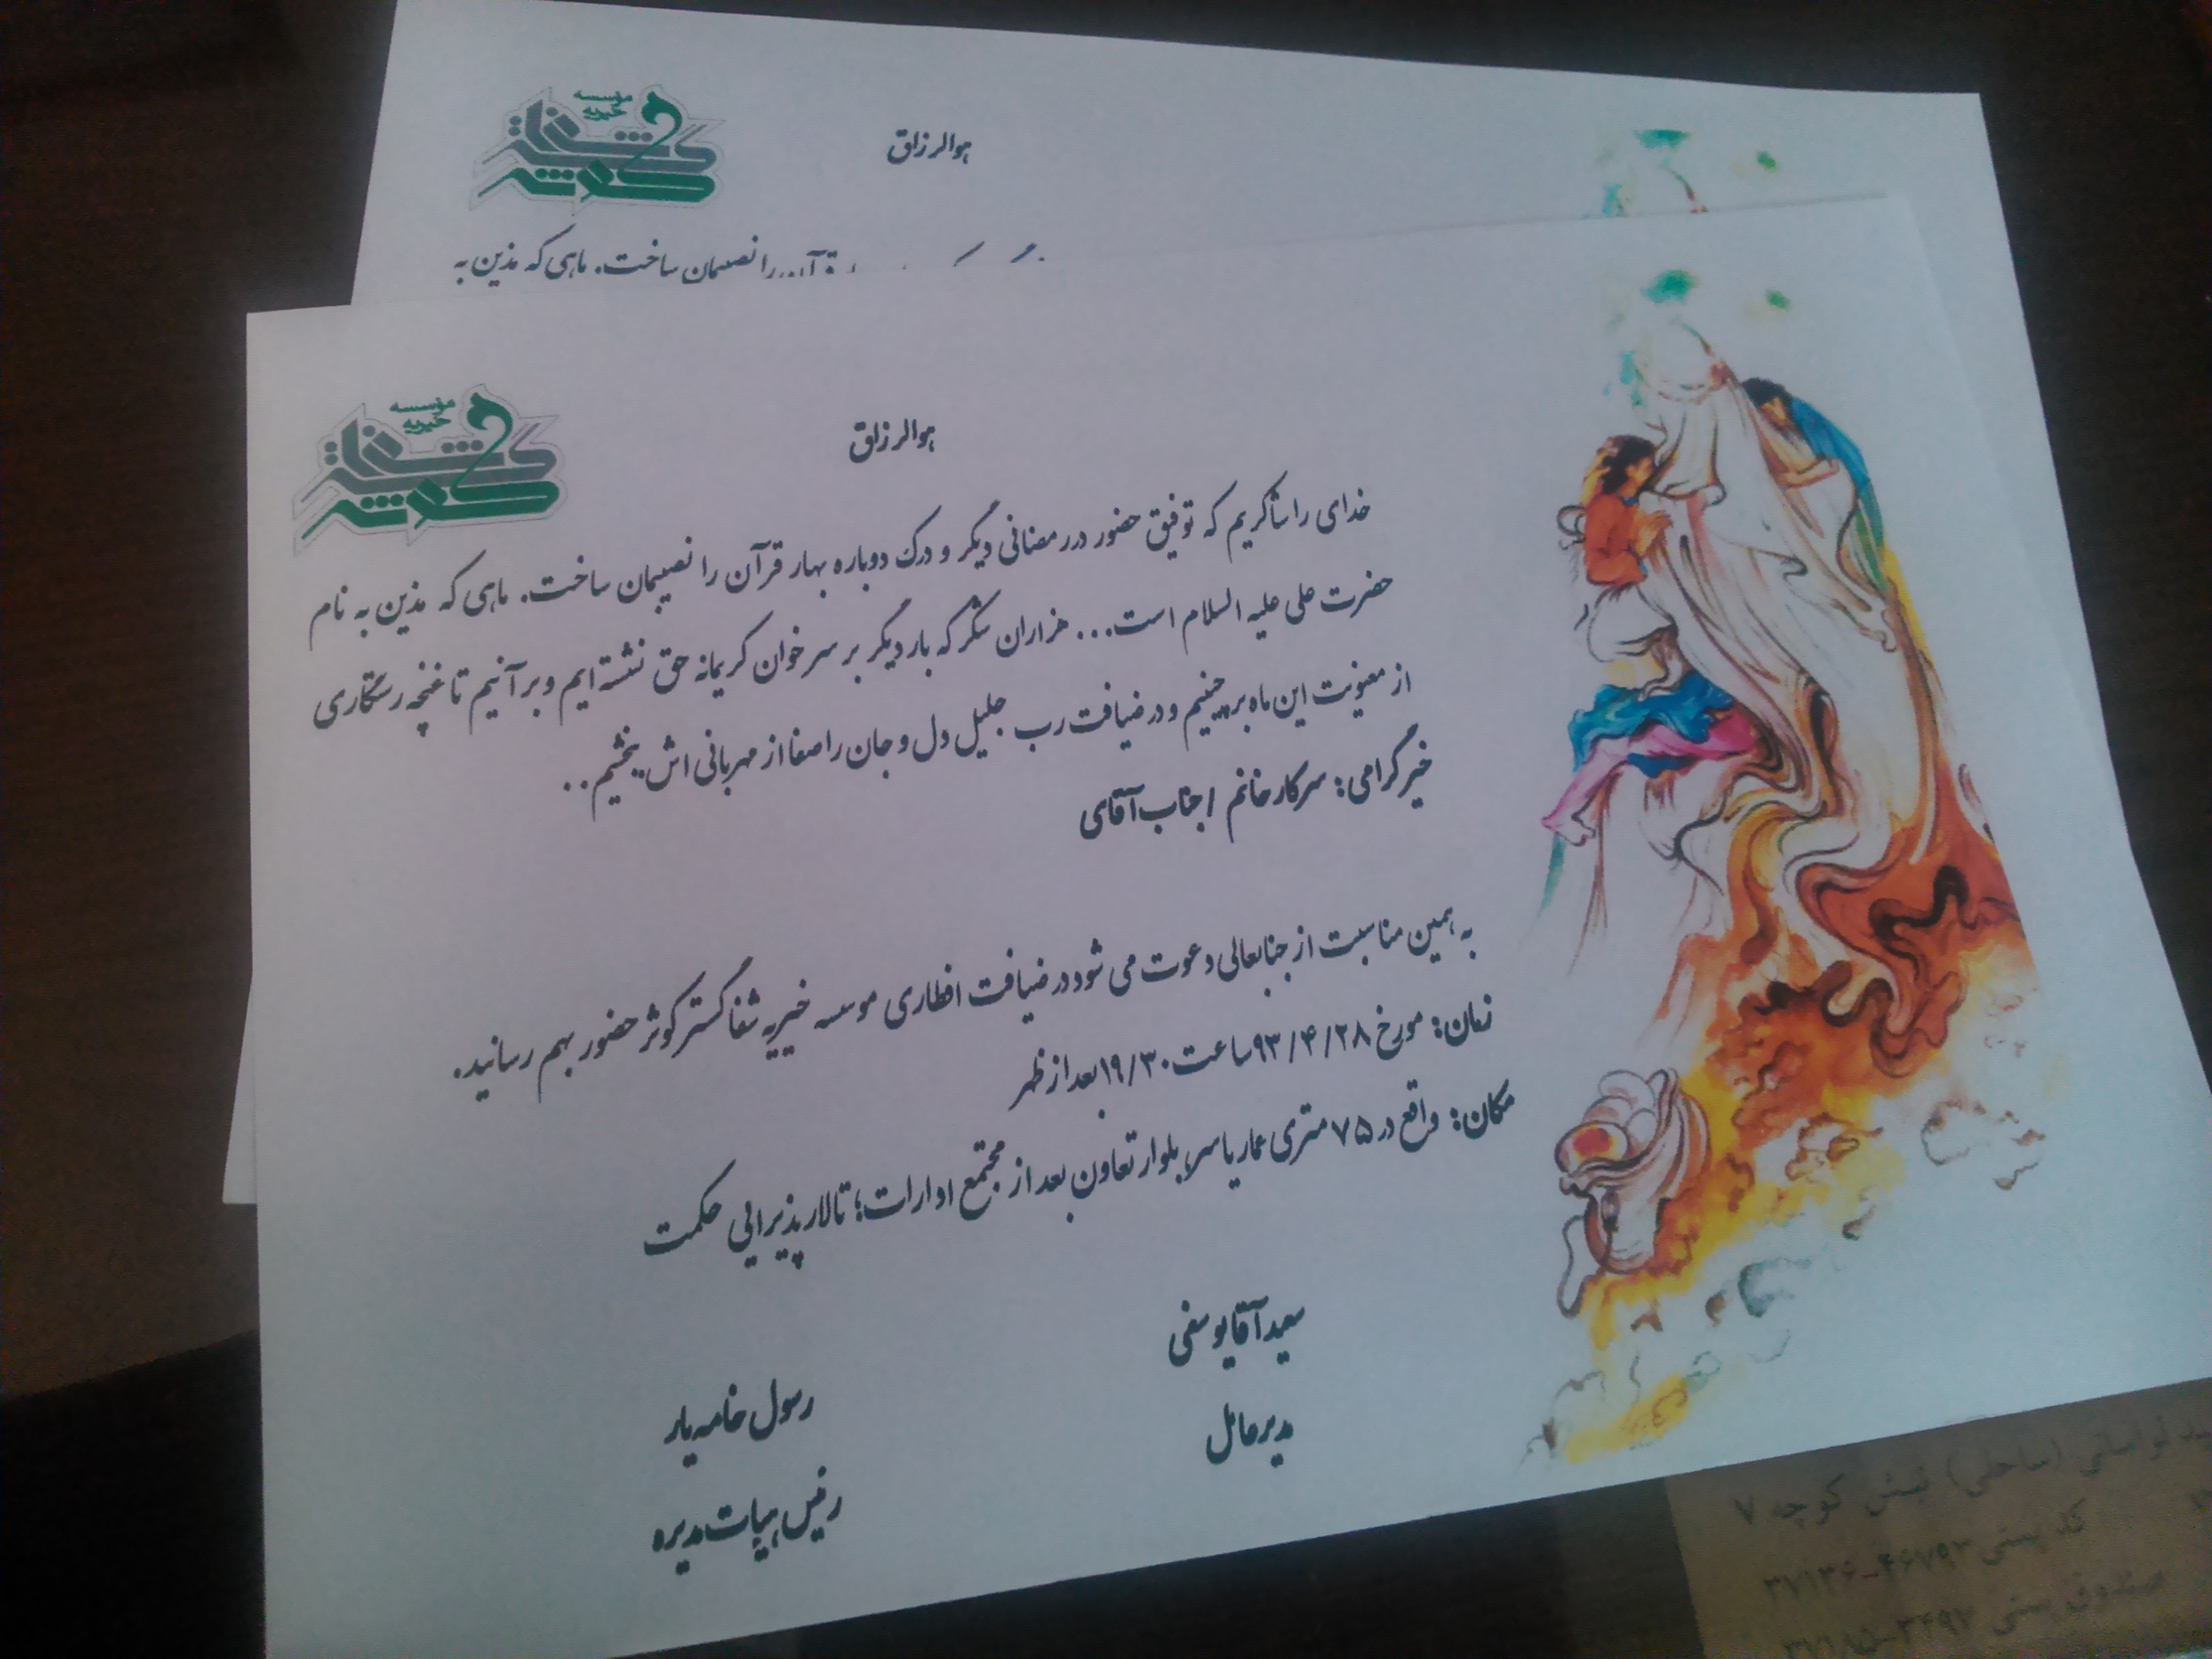 مؤسسه
خیریه
هوالرزاق
را نصیبمان ساخت. ماهی که مزین به
مؤسسه
خیریه
هوالرزاق
خدای را شاکریم که توفیق حضور در رمضانی دیگر و درک دوباره بهار قرآن را نصیبمان ساخت. ماهی که مزین به نام
حضرت علی علیه السلام است... هزاران شکر که بار دیگر بر سر خوان کریمانه حق نشسته ایم و بر آنیم تا غنچه رستگاری
از معنویت این ماه برچینیم و در ضیافت رب جلیل دل و جان را صفا از مهربانی اش بخشیم..
خیر گرامی: سرکار خانم / جناب آقای
به همین مناسبت از جنابعالی دعوت می شود در ضیافت افطاری موسسه خیریه شفا گستر کوثر حضور بهم رسانید.
زمان: مورخ ۹۳/۴/۲۸ ساعت ۱۹/۳۰ بعد از ظهر
مکان: واقع در ۷۵ متری عمار یاسر، بلوار تعاون بعد از مجتمع ادارات؛ تالار پذیرایی حکمت
سعید آقایوسفی
مدیر عامل
رسول خامه یار
رئیس هیات مدیره
(ساحلی) نبش کوچه ۷
کد پستی ۴۶۷۹۳-۳۷۱۳۶
صندوق پستی